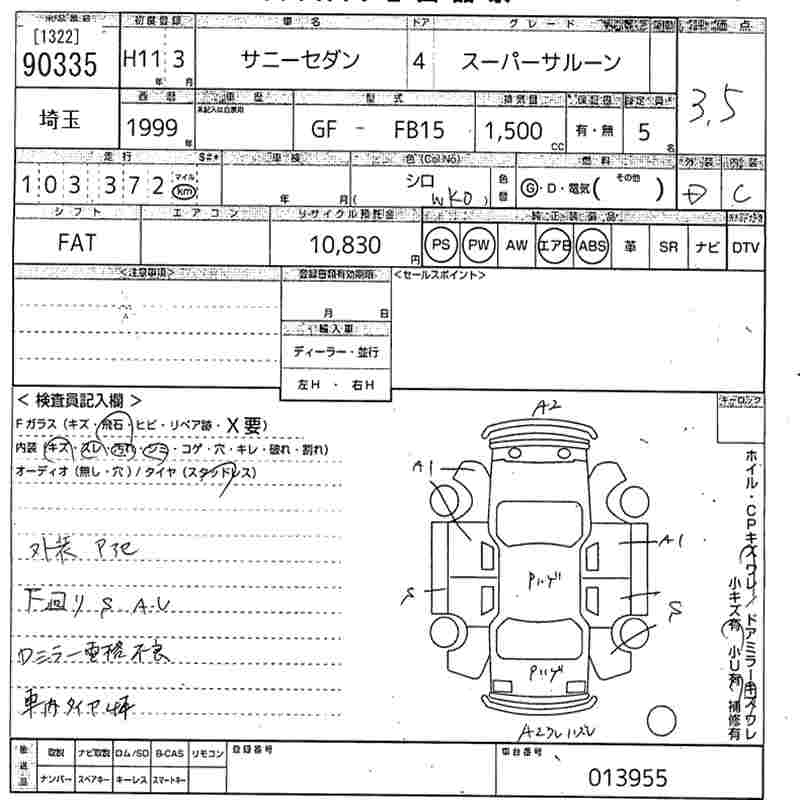 [1322]
90335
初度登録 車名 ドア グレード 評価点
H11 3 サニーセダン 4 スーパーサルーン
年 月
3.5
埼玉
西暦 車歴 型式 排気量 保証書 定員
1999 GF - FB15 1,500 有・無 5
年 CC 名
走行 S#* 車検 色(Col No) 燃料 外装 内装
103372 マイル km 年 月 シロ 色替 G・D・電気( その他 ) D C
( WK0 )
シフト エアコン リサイクル預託金 純正装備品
FAT 10,830 円 PS PW AW エアB ABS 革 SR ナビ DTV
<注意事項> 登録書類有効期限 <セールスポイント>
月 日
輸入車
ディーラー・並行
左H ・ 右H
< 検査員記入欄 >
キーロック
Fガラス (キズ・飛石・ヒビ・リペア跡・X要)
内装 (キズ・スレ・汚れ・シミ・コゲ・穴・キレ・破れ・割れ)
オーディオ (無し・穴) / タイヤ (スタッドレス)
A2
A1
A1
外装 P花
Pハゲ
下回り S A.U
S
S
Dミラー電格不良
Pハゲ
車内タイヤ4本
A2
ホイル・CPキズワレ/ドアミラーキズワレ
小キズ有 小U有 補修有
後送品 取説 ナビ取説 ロム/SD B-CAS リモコン 登録番号 車台番号
ナンバー スペアキー キーレス スマートキー 013955